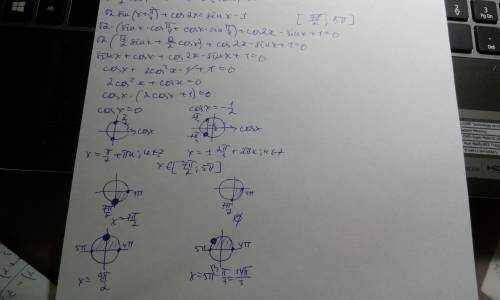 √2 sin(x+π/4)+cos2x=sinx-1 [7π/2; 5π]
√2(sinx·cosπ/4+cosx·sinπ/4)+cos2x-sinx+1=0
√2(√2/2 sinx+√2/2 cosx)+cos2x-sinx+1=0
sinx+cosx+cos2x-sinx+1=0
cosx+2cos²x-1+1=0
2cos²x+cosx=0
cosx·(2cosx+1)=0
cosx=0 cosx=-1/2
cosx cosx
x=π/2+πk; k∈Z x=±2π/3+2πk; k∈Z
x∈[7π/2; 5π]
4π
7π/2 7π/2
x=7π/2 ∅
5π 4π 5π 4π
x=9π/2 x=5π-π/3=14π/3